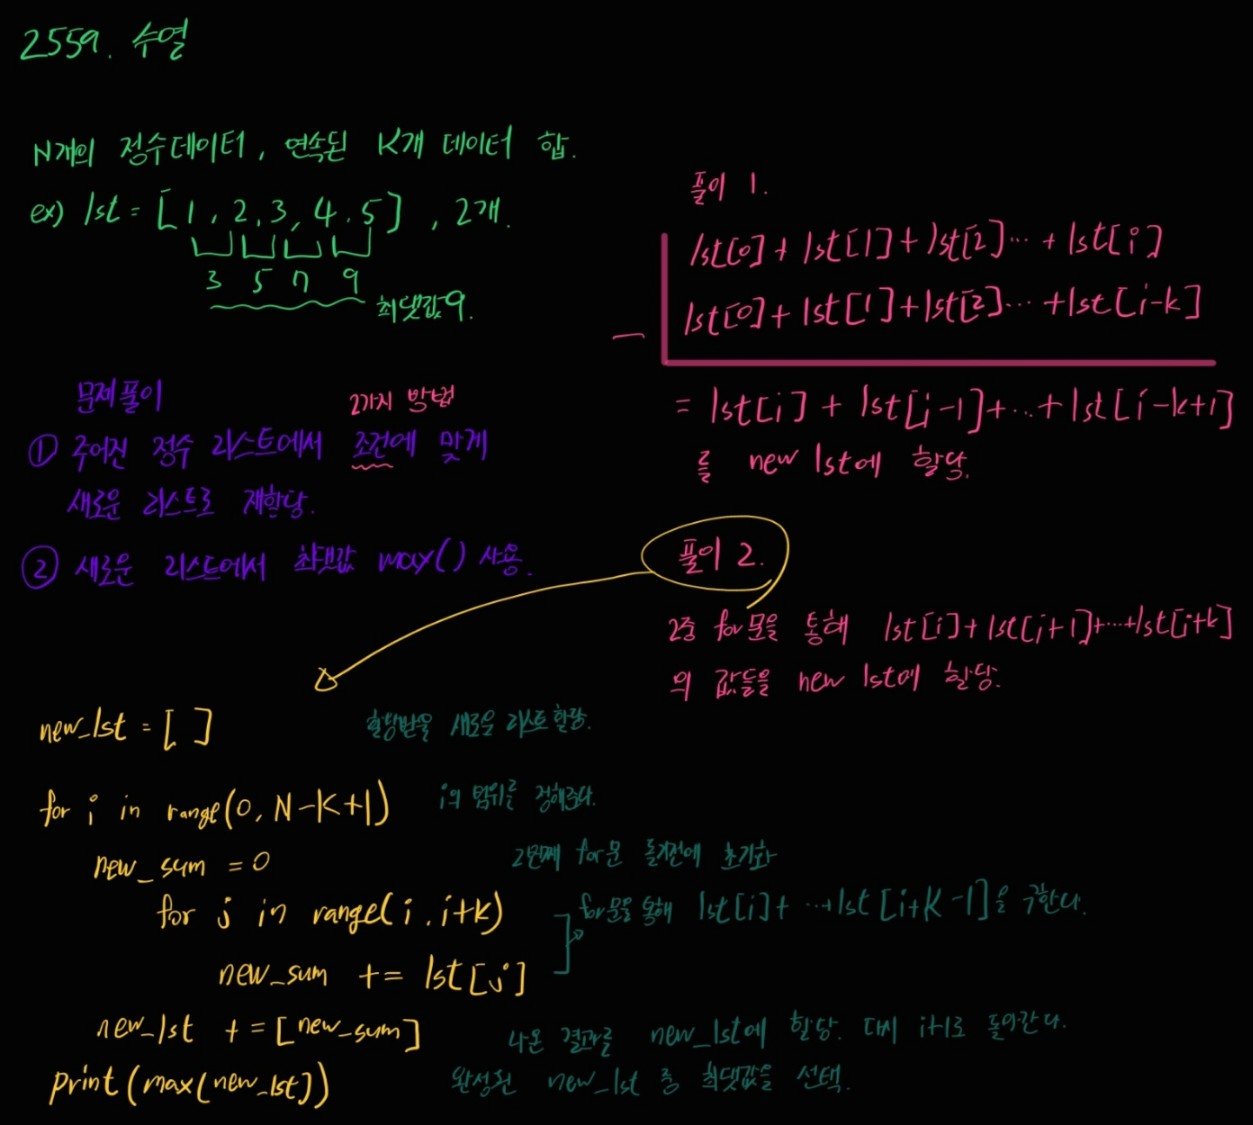 2559. 수열
N개의 정수데이터, 연속된 K개 데이터 합.
ex) lst = [1, 2, 3, 4, 5], 2개.
3 5 7 9
최댓값 9.
문제풀이
2가지 방법
① 주어진 정수 리스트에서 조건에 맞게
새로운 리스트로 재할당.
② 새로운 리스트에서 최댓값 max() 사용.
풀이 1.
lst[0] + lst[1] + lst[2] ... + lst[i]
− lst[0] + lst[1] + lst[2] ... + lst[i-k]
= lst[i] + lst[i-1] + ... + lst[i-k+1]
를 new lst에 할당.
풀이 2.
2중 for문을 통해 lst[i] + lst[i+1] + ... + lst[i+k]
의 값들을 new lst에 할당.
new_lst = [ ] 할당받을 새로운 리스트 할당.
for i in range(0, N-K+1) i의 범위를 정해준다.
new_sum = 0 2번째 for문 돌기전에 초기화
for j in range(i, i+k) for문을 통해 lst[i] + ... + lst[i+K-1]을 구한다.
new_sum += lst[j]
new_lst += [new_sum] 나온 결과를 new_lst에 할당. 다시 i+1로 돌아간다.
print(max(new_lst)) 완성된 new_lst 중 최댓값을 선택.